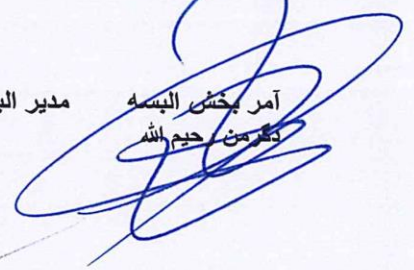 آمر بخش البسه    مدیر
دگرمن رحیم الله